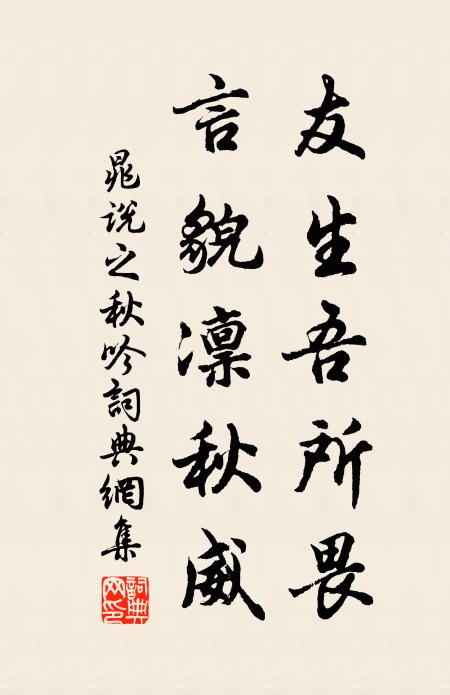 友生吾所畏
言貌凛秋威
晁說之秋吟詞典網集
詞典網印